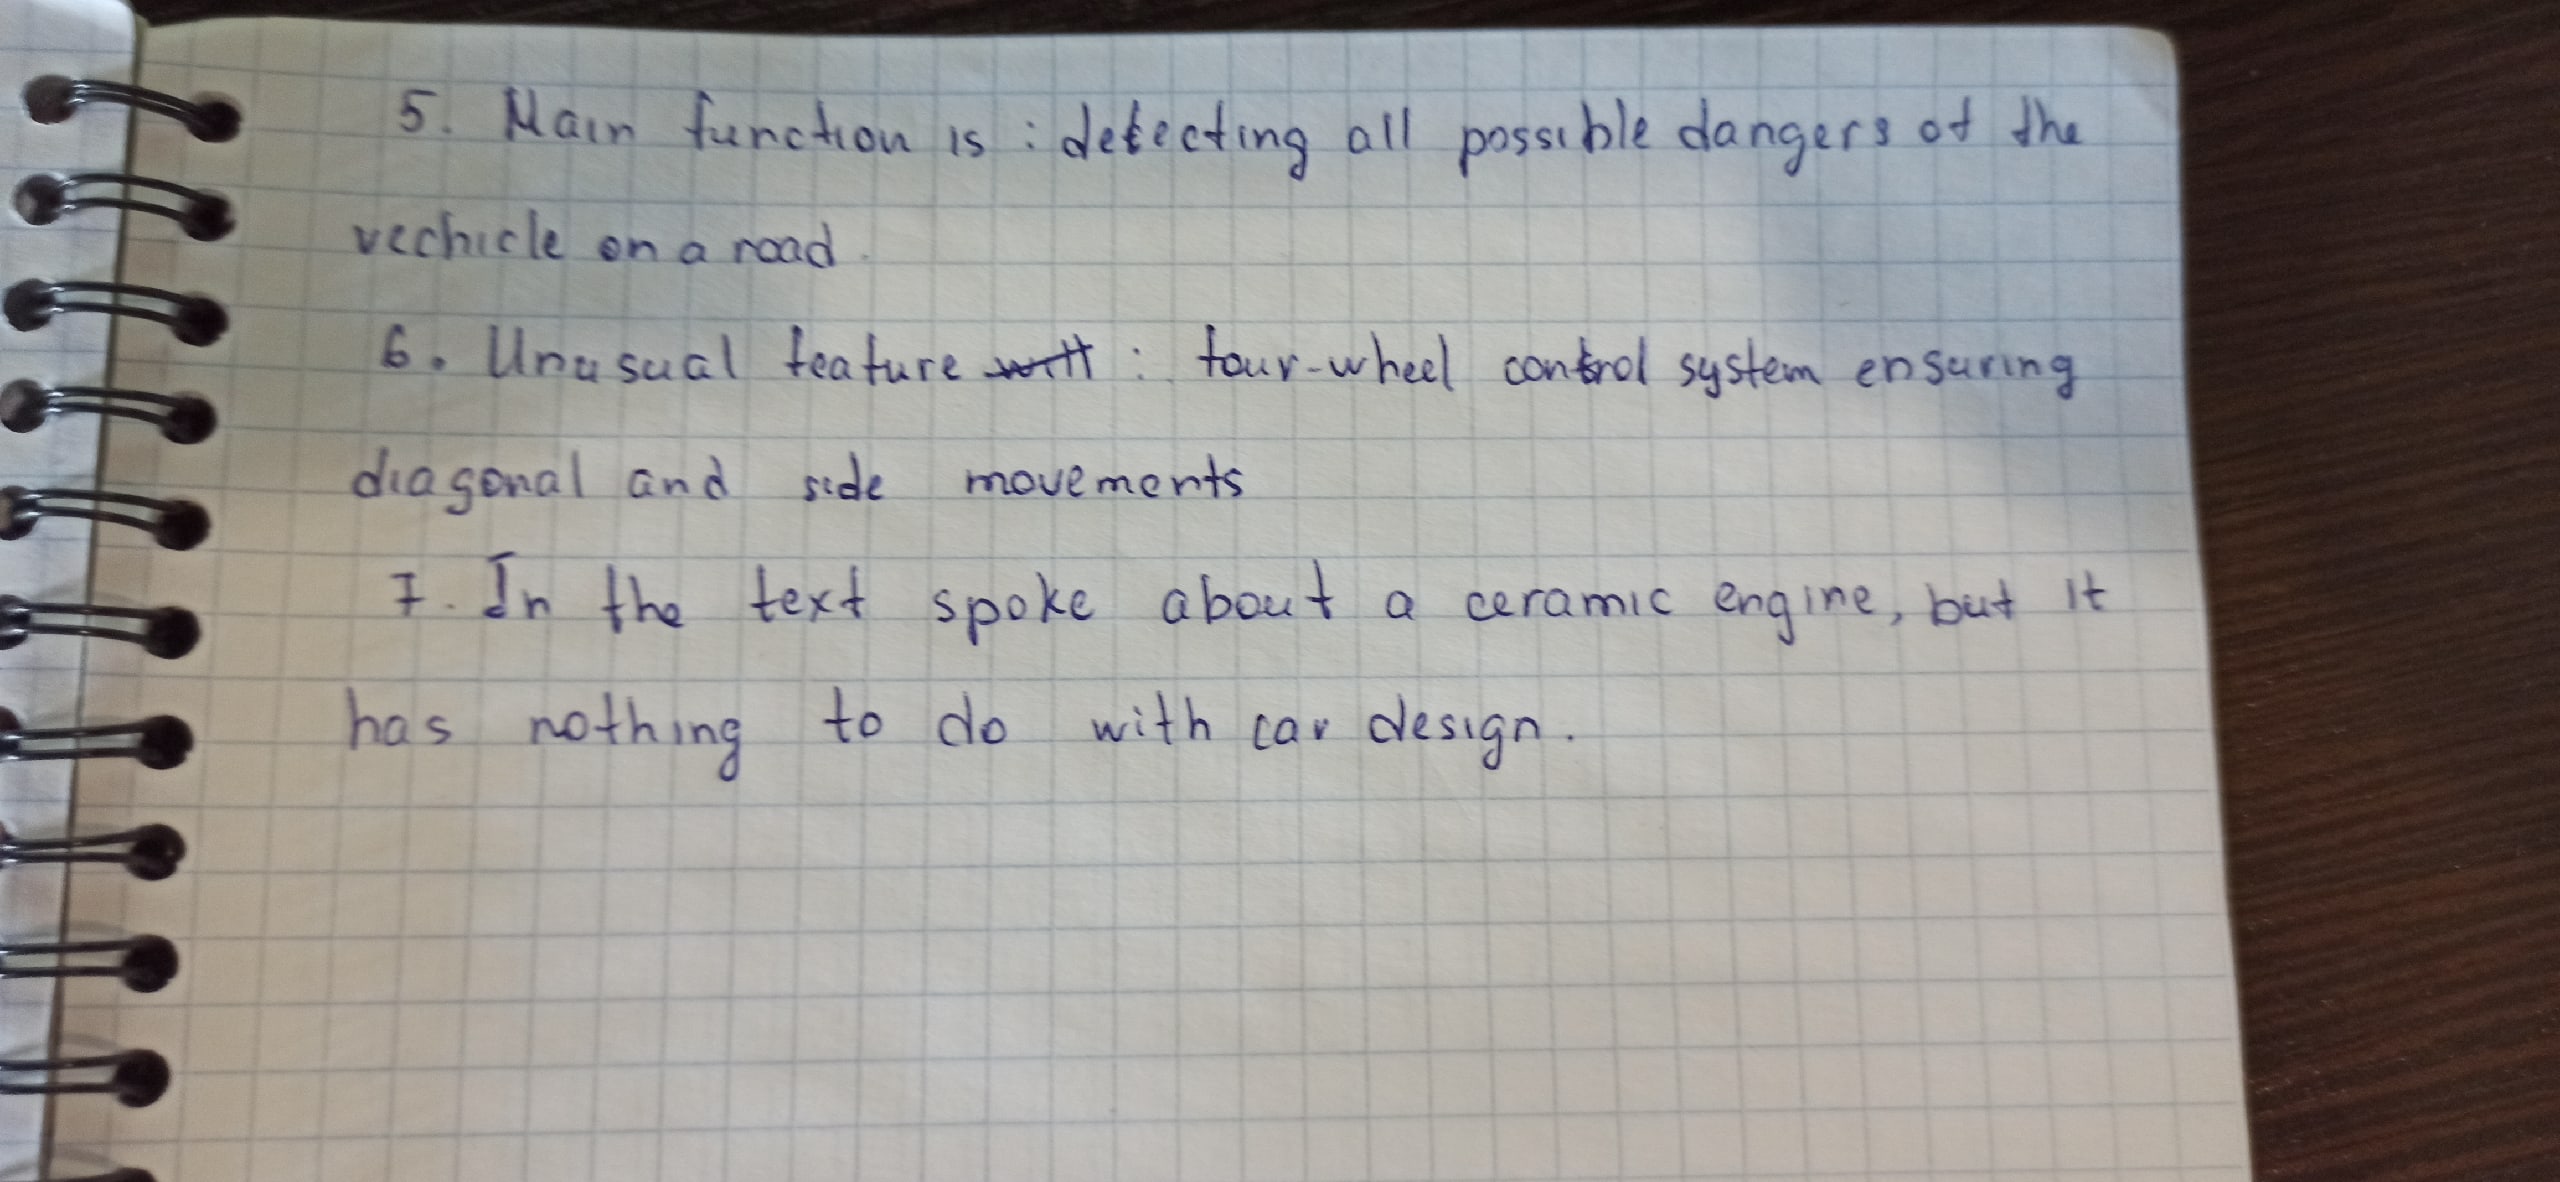 5. Main function is : detecting all possible dangers of the
vechicle on a road.
6. Unusual feature : four-wheel control system ensuring
diagonal and side movements
7. In the text spoke about a ceramic engine, but it
has nothing to do with car design.